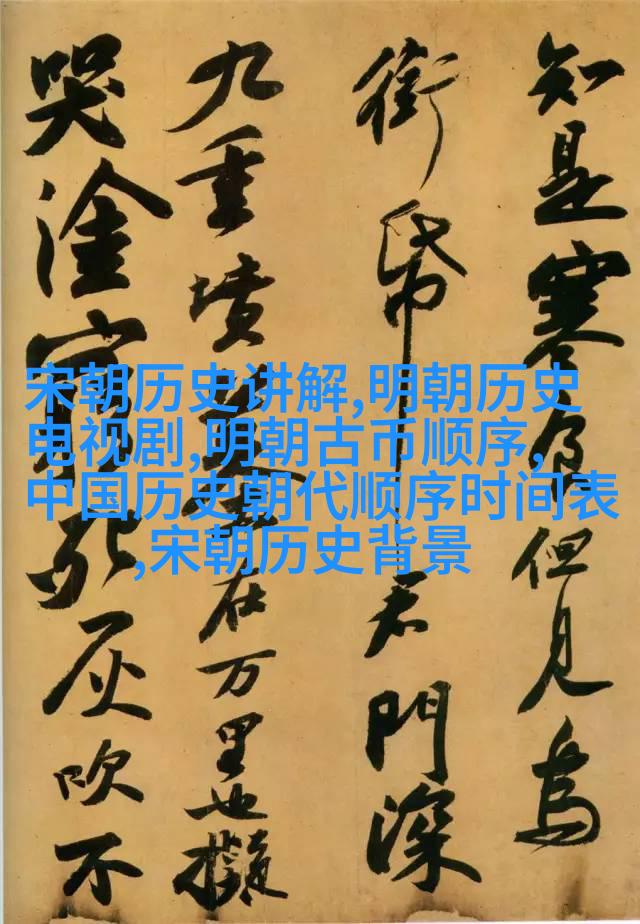 知是寒食但見烏
銜帋君門深
九重墳墓在万里也擬
哭塗窮死灰吹不
宋朝历史讲解,明朝历史
电视剧,明朝古币顺序,
中国历史朝代顺序时间表
,宋朝历史背景